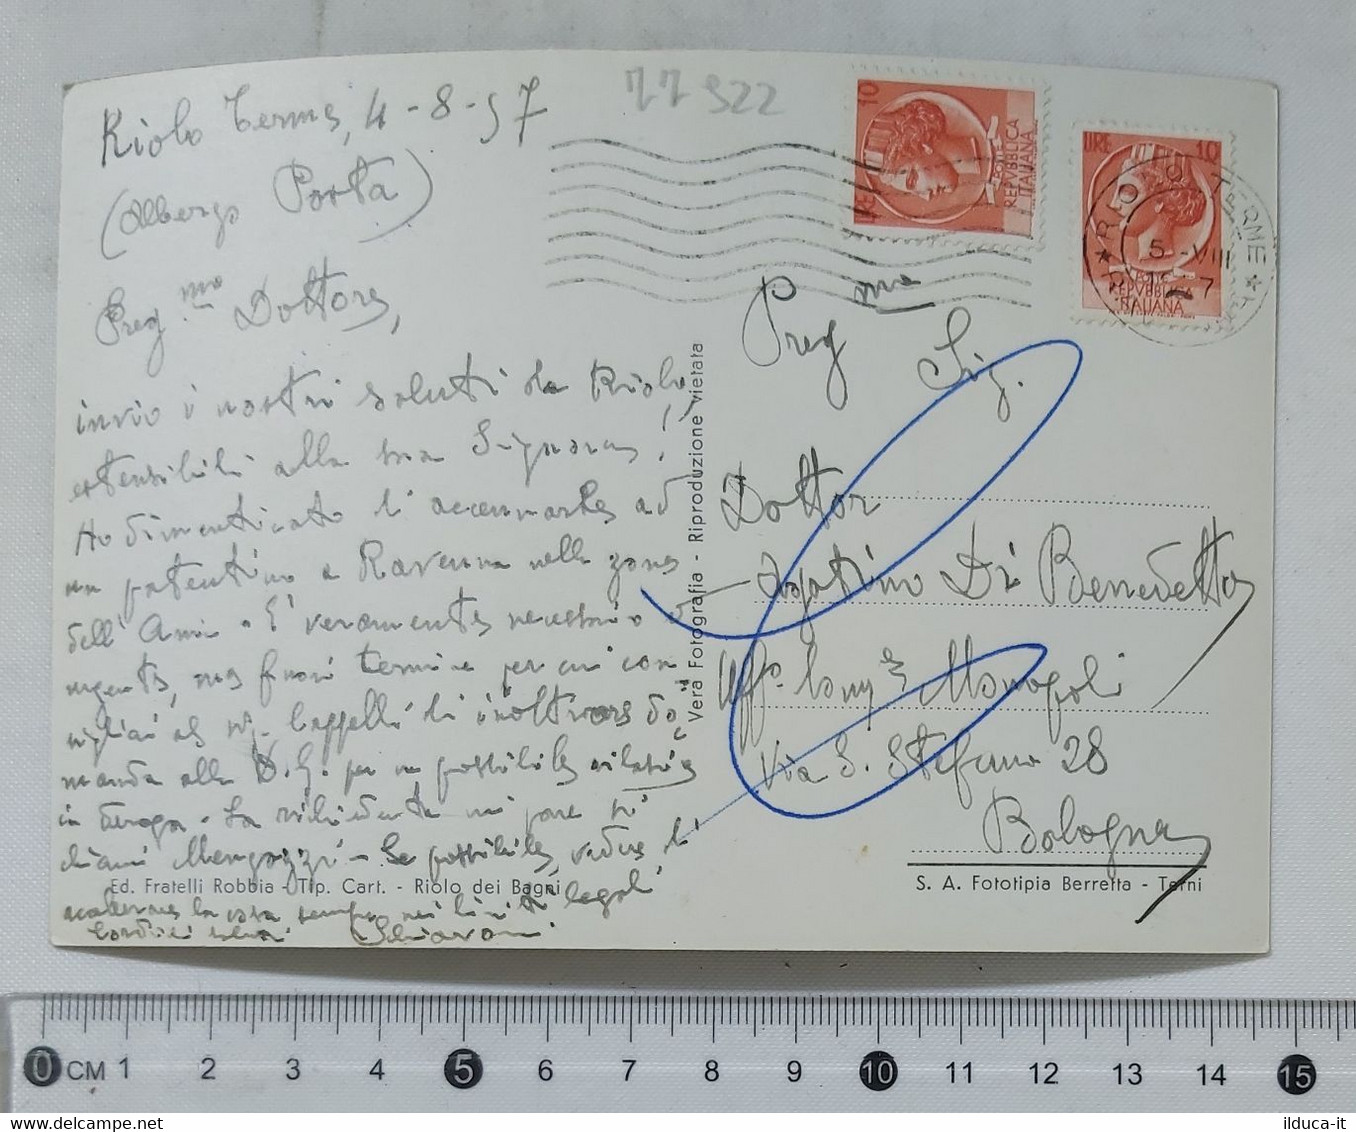 77522
Riolo Terme, 4-8-57
(Albergo Porta)
Preg.mo Dottore,
invio i nostri saluti da Riolo,
estensibili alla sua Signora!
Ho dimenticato di accennarle ad
un patentino a Ravenna nella zona
dell' Anic - E' veramente necessario e
urgente, ma fuori termine per cui con
al sig. Cappelli di inoltrare do-
manda alla D.G. per un possibile rilascio
in deroga - La richiedente mi pare si
chiami Mengozzi - Se possibile, veda di
la cosa sempre nei limiti legali
Cordiali saluti Schiavoni
Ed. Fratelli Robbia - Tip. Cart. - Riolo dei Bagni
Vera Fotografia - Riproduzione vietata
10 LIRE
REPVBBLICA
ITALIANA
LIRE 10
REPVBBLICA
ITALIANA
RIOLO TERME
5 - VIII
Preg mo
Sig.
Dottor
Agatino Di Benedetto
Uff. Monopoli
Via S. Stefano 28
Bologna
S. A. Fototipia Berretta - Terni
0 CM 1 2 3 4 5 6 7 8 9 10 11 12 13 14 15
ilduca-it